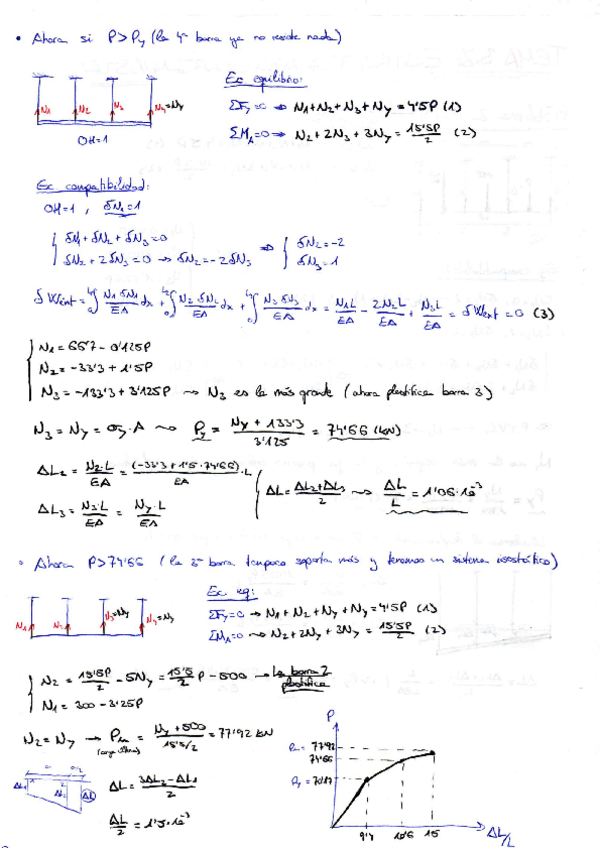 • Ahora si P > Py (la 4ª barra ya no resiste nada)
N1 N2 N3 Ny=Ny
OH=1
Ec equilibrio:
ΣFy=0 → N1+N2+N3+Ny = 4'5P (1)
ΣMA=0 → N2+2N3+3Ny = 15'5P/2 (2)
Ec compatibilidad:
OH=1, δN1=1
δN1+δN2+δN3=0
δN2+2δN3=0 → δN2=-2δN3 ⇒ δN2=-2
δN3=1
δWint = ∫ N1·δN1/EA dx + ∫ N2·δN2/EA dx + ∫ N3·δN3/EA dx = N1L/EA - 2N2L/EA + N3L/EA = δWext = 0 (3)
N1 = 66'7 - 0'125P
N2 = -33'3 + 1'5P
N3 = -133'3 + 3'125P → N3 es la más grande (ahora plastifica barra 3)
N3 = Ny = σy·A → Py = Ny + 133'3 / 3'125 = 74'66 (kN)
ΔL2 = N2·L/EA = (-33'3+1'5·74'66)/EA ·L
ΔL3 = N3·L/EA = Ny·L/EA
ΔL = ΔL2+ΔL3 / 2 → ΔL/L = 1'06·10-3
• Ahora P>74'66 (la 3ª barra tampoco soporta más y tenemos un sistema isostático)
N1 N2 N3=Ny Ny=Ny
Ec eq:
ΣFy=0 → N1+N2+Ny+Ny=4'5P (1)
ΣMA=0 → N2+2Ny+3Ny = 15'5P/2 (2)
N2 = 15'5P/2 - 5Ny = 15'5/2 P - 500 → La barra 2 plastifica
N1 = 300 - 3'25P
N2 = Ny → = Ny+500 / 15'5/2 = 77'92 kN
ΔL1 ΔL2 ΔL
ΔL = 3ΔL2-ΔL1 / 2
ΔL/2 = 1'5·10-3
P
77'92
74'66
Py =
10'6 15
ΔL/L